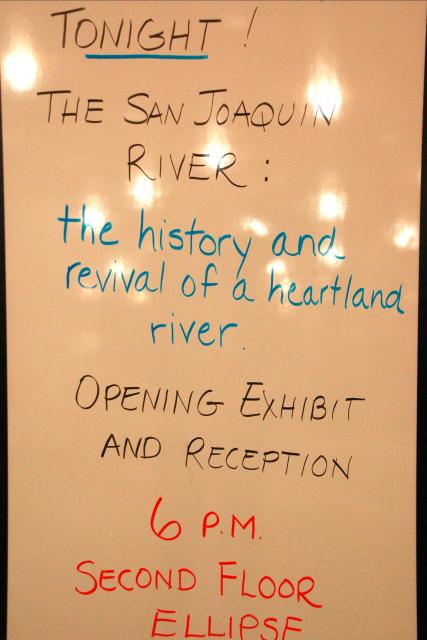 TONIGHT!
THE SAN JOAQUIN
RIVER:
the history and
revival of a heartland
river.
OPENING EXHIBIT
AND RECEPTION
6 P.M.
SECOND FLOOR
ELLIPSE